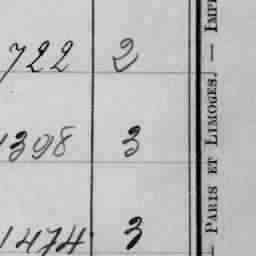 722 2
1398 3
1474 3
— PARIS ET LIMOGES. — IMP